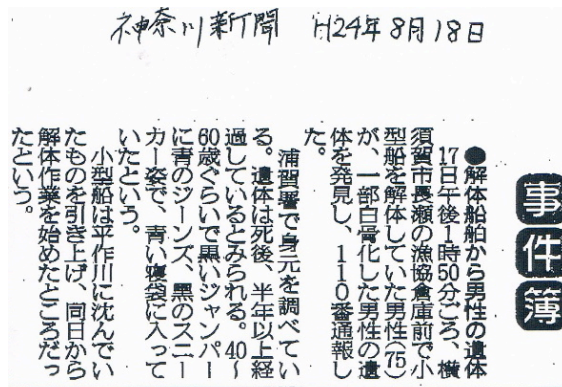 神奈川新聞　H24年8月18日
事件簿
●解体船舶から男性の遺体
　17日午後1時50分ごろ、横
須賀市長瀬の漁協倉庫前で小
型船を解体していた男性(75)
が、一部白骨化した男性の遺
体を発見し、110番通報し
た。
　浦賀署で身元を調べてい
る。遺体は死後、半年以上経
過しているとみられる。40〜
60歳ぐらいで黒いジャンパー
に青のジーンズ、黒のスニー
カー姿で、青い寝袋に入って
いたという。
　小型船は平作川に沈んでい
たものを引き上げ、同日から
解体作業を始めたところだっ
たという。